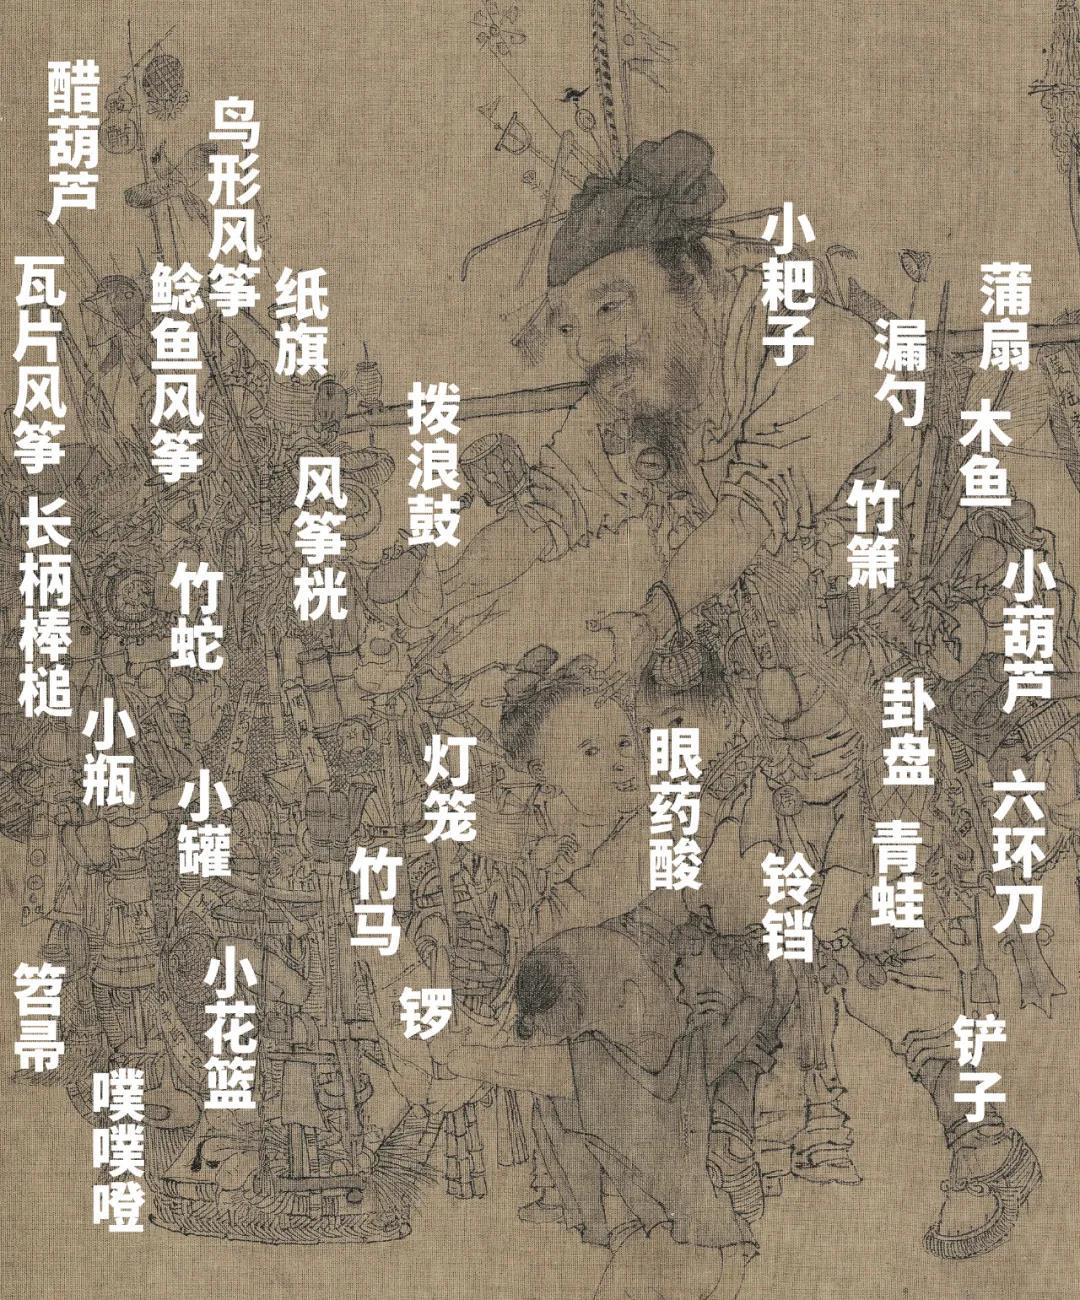 醋葫芦
鸟形风筝
瓦片风筝
鲶鱼风筝
纸旗
小耙子
蒲扇
漏勺
拨浪鼓
木鱼
风筝桄
竹箫
长柄棒槌
竹蛇
小葫芦
卦盘
小瓶
灯笼
眼药酸
小罐
六环刀
青蛙
竹马
铃铛
笤帚
小花篮
锣
铲子
噗噗噔